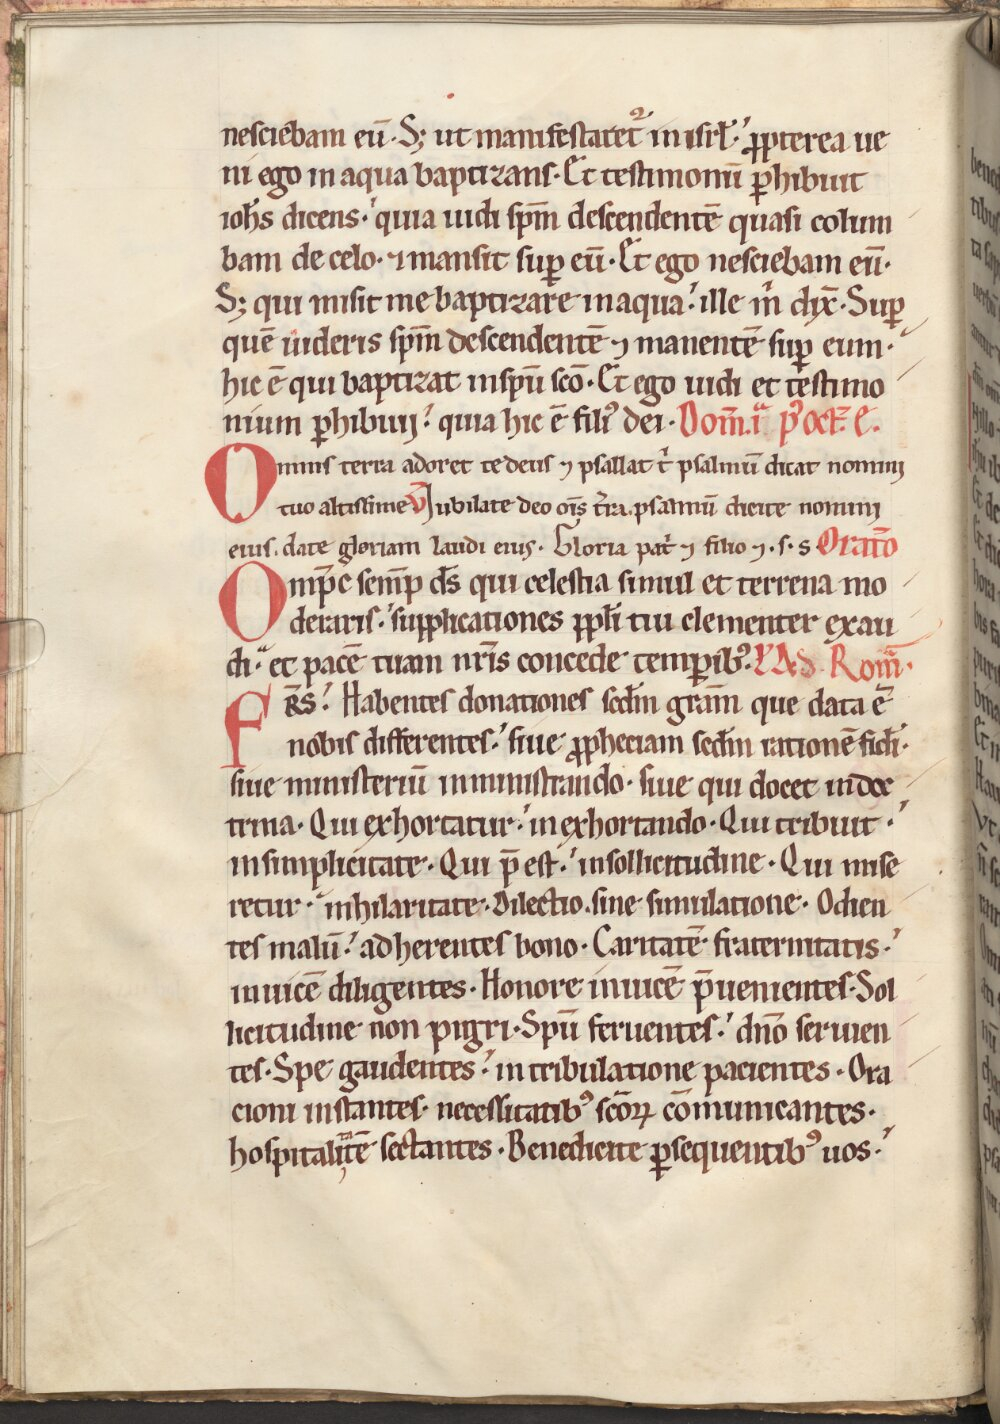 nesciebam eū. S; ut manifestaret᷑ in isrl̄. ꝓpterea ue
ni ego in aqua baptizans. Et testimoniū ꝑhibuit
ioh̄s dicens. quia uidi sp̄m descendentē quasi colum
bam de celo. ⁊ mansit suꝑ eū. Et ego nesciebam eū.
S; qui misit me baptizare in aqua. ille m̄ dix̄. Suꝑ
quē uideris sp̄m descendentē ⁊ manentē suꝑ eum.
hic ē qui baptizat in sp̄u sc̄o. Et ego uidi et testimo
nium ꝑhibui. quia hic ē filiꝰ dei. Dom̄.i.ᵃ pꝰ oct̄. E.
Omnis terra adoret te deus ⁊ psallat t̄ psalmū dicat nomini
tuo altissime V̄ Iubilate deo om̄s t̄ra. psalmū dicite nomini
eius. date gloriam laudi eius. Gloria pat̄ ⁊ filio ⁊. s. s Oratō
Omp̄c semꝑ ds̄ qui celestia simul et terrena mo
deraris. supplicationes ppl̄i tui clementer exau
di. et pacē tuam nr̄is concede temꝑibꝰ. L̄ Ad Rom̄.
Fr̄s. Habentes donationes scdm̄ grām que data ē
nobis differentes. siue ꝓpheciam scdm̄ rationē fidi.
siue ministeriū in ministrando. siue qui docet in doc
trina. Qui exhortatur. in exhortando. Qui tribuit.
in simplicitate. Qui p̄est. in sollicitudine. Qui mise
retur. in hilaritate. Dilectio. sine simulatione. Odien
tes malū. adherentes bono. Caritatē fraternitatis.
inuicē diligentes. Honore inuicē p̄uenientes. Sol
licitudine non pigri. Spū feruentes. dn̄o seruien
tes. Spe gaudentes. in tribulatione pacientes. Ora
cioni instantes. necessitatibꝰ sc̄oꝝ cōmunicantes.
hospitalitatē sectantes. Benedicite ꝑsequentibꝰ uos.